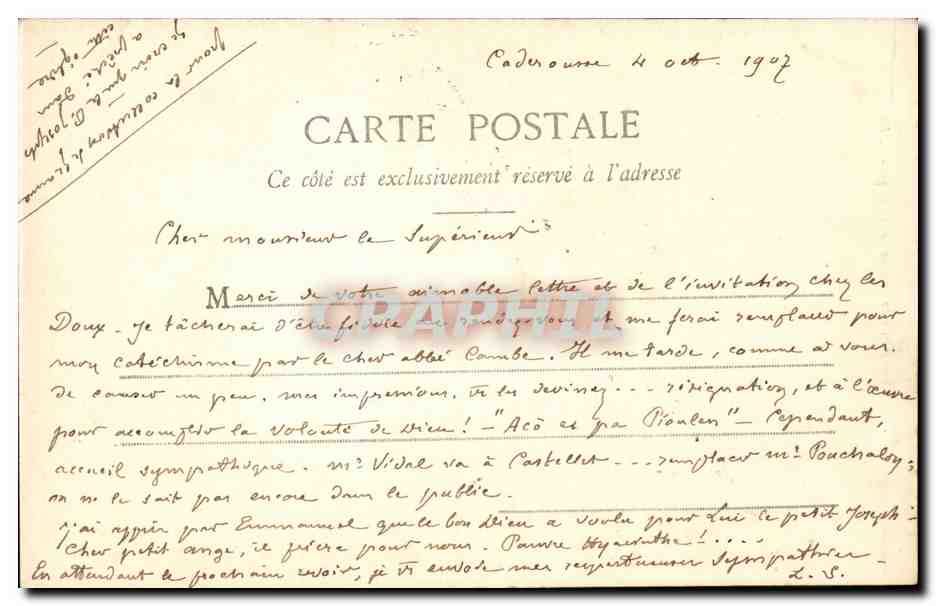 pour la collection de Jeanne
je crois que le P. Joseph
a prêché dans
cette église
Caderousse 4 oct. 1907
CARTE POSTALE
Ce côté est exclusivement réservé à l'adresse
Cher monsieur le Supérieur
Merci de votre aimable lettre et de l'invitation chez les
Doux. Je tâcherai d'être fidèle au rendez-vous et me ferai remplacer pour
mon catéchisme par le cher abbé Combe. Il me tarde, comme à vous,
de causer un peu. mes impressions, vs les devinez... résignation, et à l'œuvre
pour accomplir la volonté de Dieu! - "Acò es pa Pioulen" - Cependant,
accueil sympathique. Mr Vidal va à Castellet... remplacer Mr Pouchalon;
on ne le sait pas encore dans le public.
j'ai appris par Emmanuel que le bon Dieu a voulu pour Lui le petit Joseph -
Cher petit ange, il priera pour nous. Pauvre Hyacinthe!....
En attendant le prochain revoir, je vs envoie mes respectueuses sympathies
L. S.
CPAPHIL